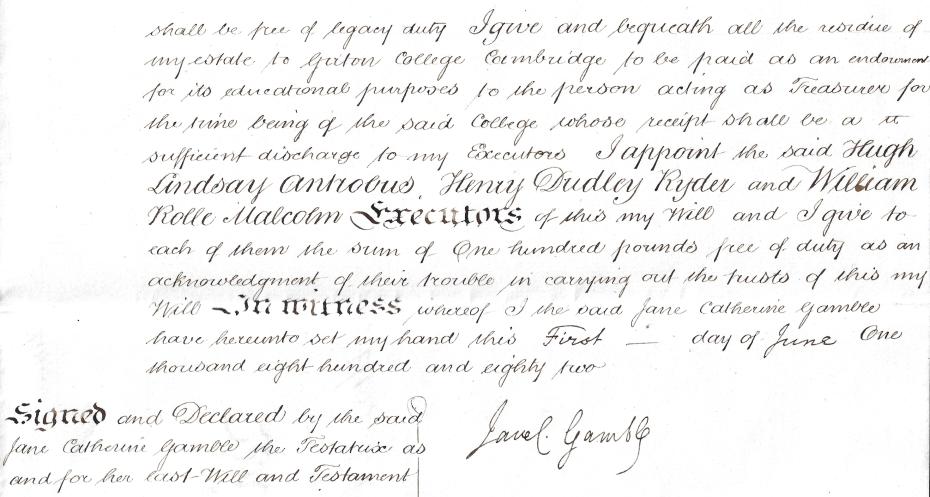 shall be free of legacy duty I give and bequeath all the residue of
my estate to Girton College Cambridge to be paid as an endowment
for its educational purposes to the person acting as Treasurer for
the time being of the said College whose receipt shall be a
sufficient discharge to my Executors I appoint the said Hugh
Lindsay Antrobus, Henry Dudley Ryder and William
Rolle Malcolm Executors of this my Will and I give to
each of them the sum of One hundred pounds free of duty as an
acknowledgment of their trouble in carrying out the trusts of this my
Will In witness whereof I the said Jane Catherine Gamble
have hereunto set my hand this First — day of June One
thousand eight hundred and eighty two
Signed and Declared by the said
Jane Catherine Gamble the Testatrix as
and for her last Will and Testament
Jane C. Gamble